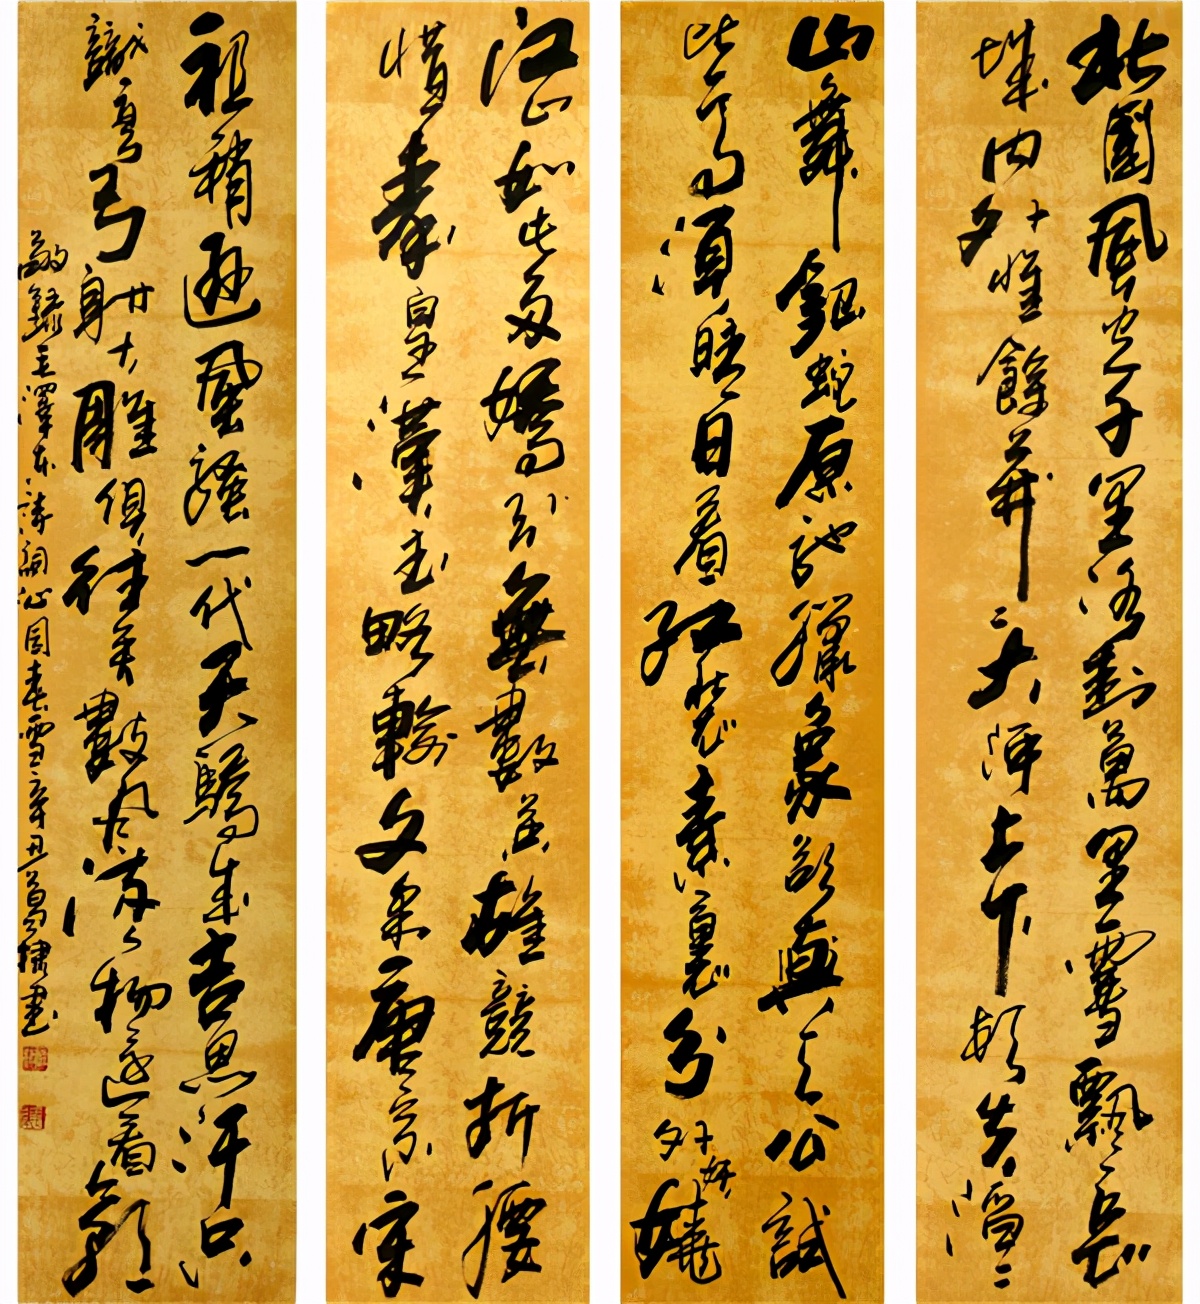 北國風光千里冰封萬里雪飄長
城内外惟餘莽々大河上下頓失滔々
山舞銀蛇原馳臘象欲與天公試
比高須晴日看紅裝素裹分外妖嬈
江山如此多嬌引無數英雄競折腰
惜秦皇漢武略輸文采唐宗宋
祖稍遜風騷一代天驕成吉思汗只
識彎弓射大雕俱往矣數風流人物還看今朝
敬錄毛澤東詩詞沁園春雪辛丑葛棣書